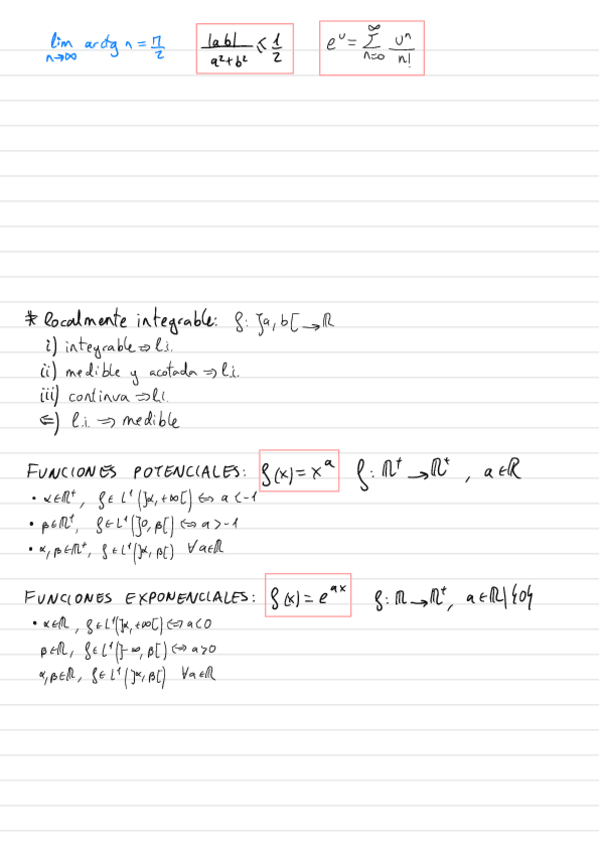 lim n→∞ arctg n = π/2   |ab|/(a²+b²) ≤ 1/2   e^u = ∑_{n=0}^{∞} u^n/n!
* localmente integrable: f: ]a,b[ → ℝ
i) integrable ⇒ l.i.
ii) medible y acotada ⇒ l.i.
iii) continua ⇒ l.i.
⇐) l.i. ⇒ medible
FUNCIONES POTENCIALES: f(x) = x^a   f: ℝ⁺ → ℝ⁺, a∈ℝ
• α∈ℝ⁺, f∈L¹(]α,+∞[) ⇔ a<-1
• β∈ℝ⁺, f∈L¹(]0,β[) ⇔ a>-1
• α,β∈ℝ⁺, f∈L¹(]α,β[) ∀a∈ℝ
FUNCIONES EXPONENCIALES: f(x) = e^{ax}   f: ℝ → ℝ⁺, a∈ℝ\{0}
• α∈ℝ, f∈L¹(]α,+∞[) ⇔ a<0
β∈ℝ, f∈L¹(]-∞,β[) ⇔ a>0
α,β∈ℝ, f∈L¹(]α,β[) ∀a∈ℝ